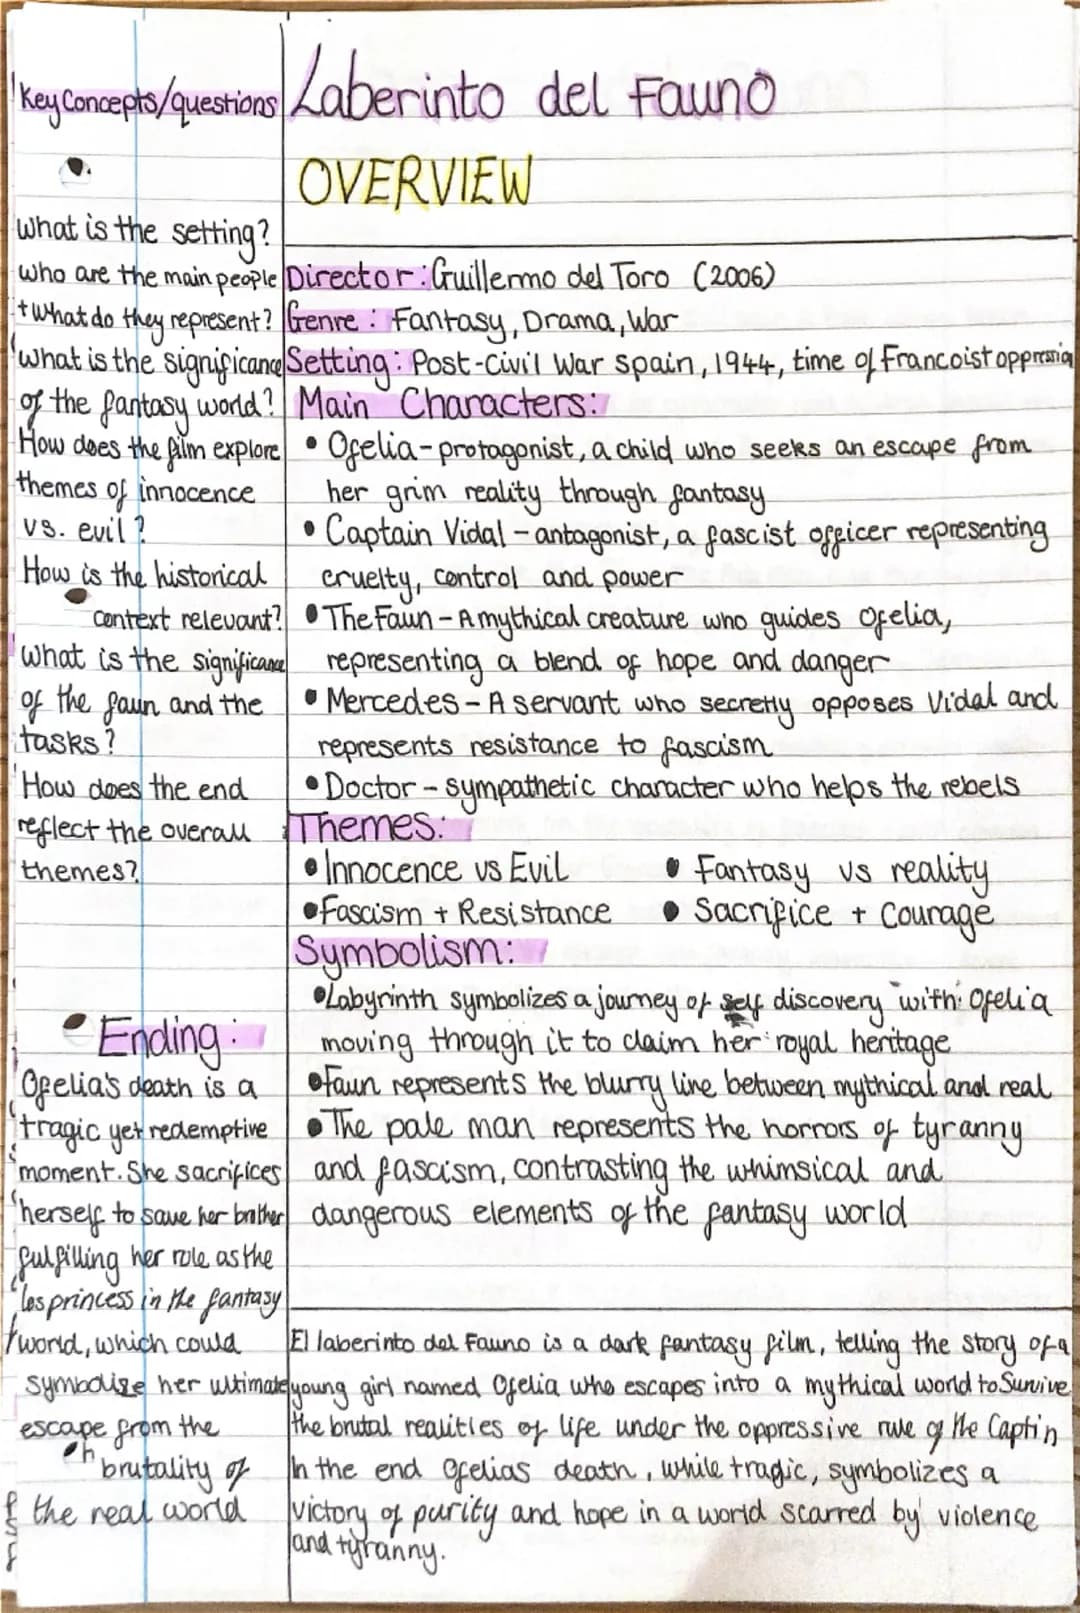 Key Concepts/questions
Laberinto del Fauno
OVERVIEW
what is the setting?
who are the main people
+ what do they represent?
what is the significance
of the fantasy world?
How does the film explore
themes of innocence
vs. evil?
How is the historical
context relevant?
what is the significance
of the faun and the
tasks?
How does the end
reflect the overall
themes?
Ending:
Ofelia's death is a
tragic yet redemptive
moment. She sacrifices
herself to save her brother
fulfilling her role as the
los princess in the fantasy
world, which could
symbolize her ultimate
escape from the
brutality of
the real world
Director: Guillermo del Toro (2006)
Genre: Fantasy, Drama, War
Setting: Post-Civil War Spain, 1944, time of Francoist oppression
Main Characters:
• Ofelia - protagonist, a child who seeks an escape from
her grim reality through fantasy
• Captain Vidal - antagonist, a fascist officer representing
cruelty, control and power
• The Faun - A mythical creature who guides Ofelia,
representing a blend of hope and danger
• Mercedes - A servant who secretly opposes Vidal and
represents resistance to fascism
• Doctor - sympathetic character who helps the rebels
Themes:
• Innocence vs Evil • Fantasy vs reality
• Fascism + Resistance • Sacrifice + Courage
Symbolism:
• Labyrinth symbolizes a journey of self discovery with Ofelia
moving through it to claim her royal heritage
• Faun represents the blurry line between mythical and real
• The pale man represents the horrors of tyranny
and fascism, contrasting the whimsical and
dangerous elements of the fantasy world
El laberinto del Fauno is a dark fantasy film, telling the story of a
young girl named Ofelia who escapes into a mythical world to survive
the brutal realities of life under the oppressive rule of the Captin
In the end Ofelias death, while tragic, symbolizes a
victory of purity and hope in a world scarred by violence
and tyranny.